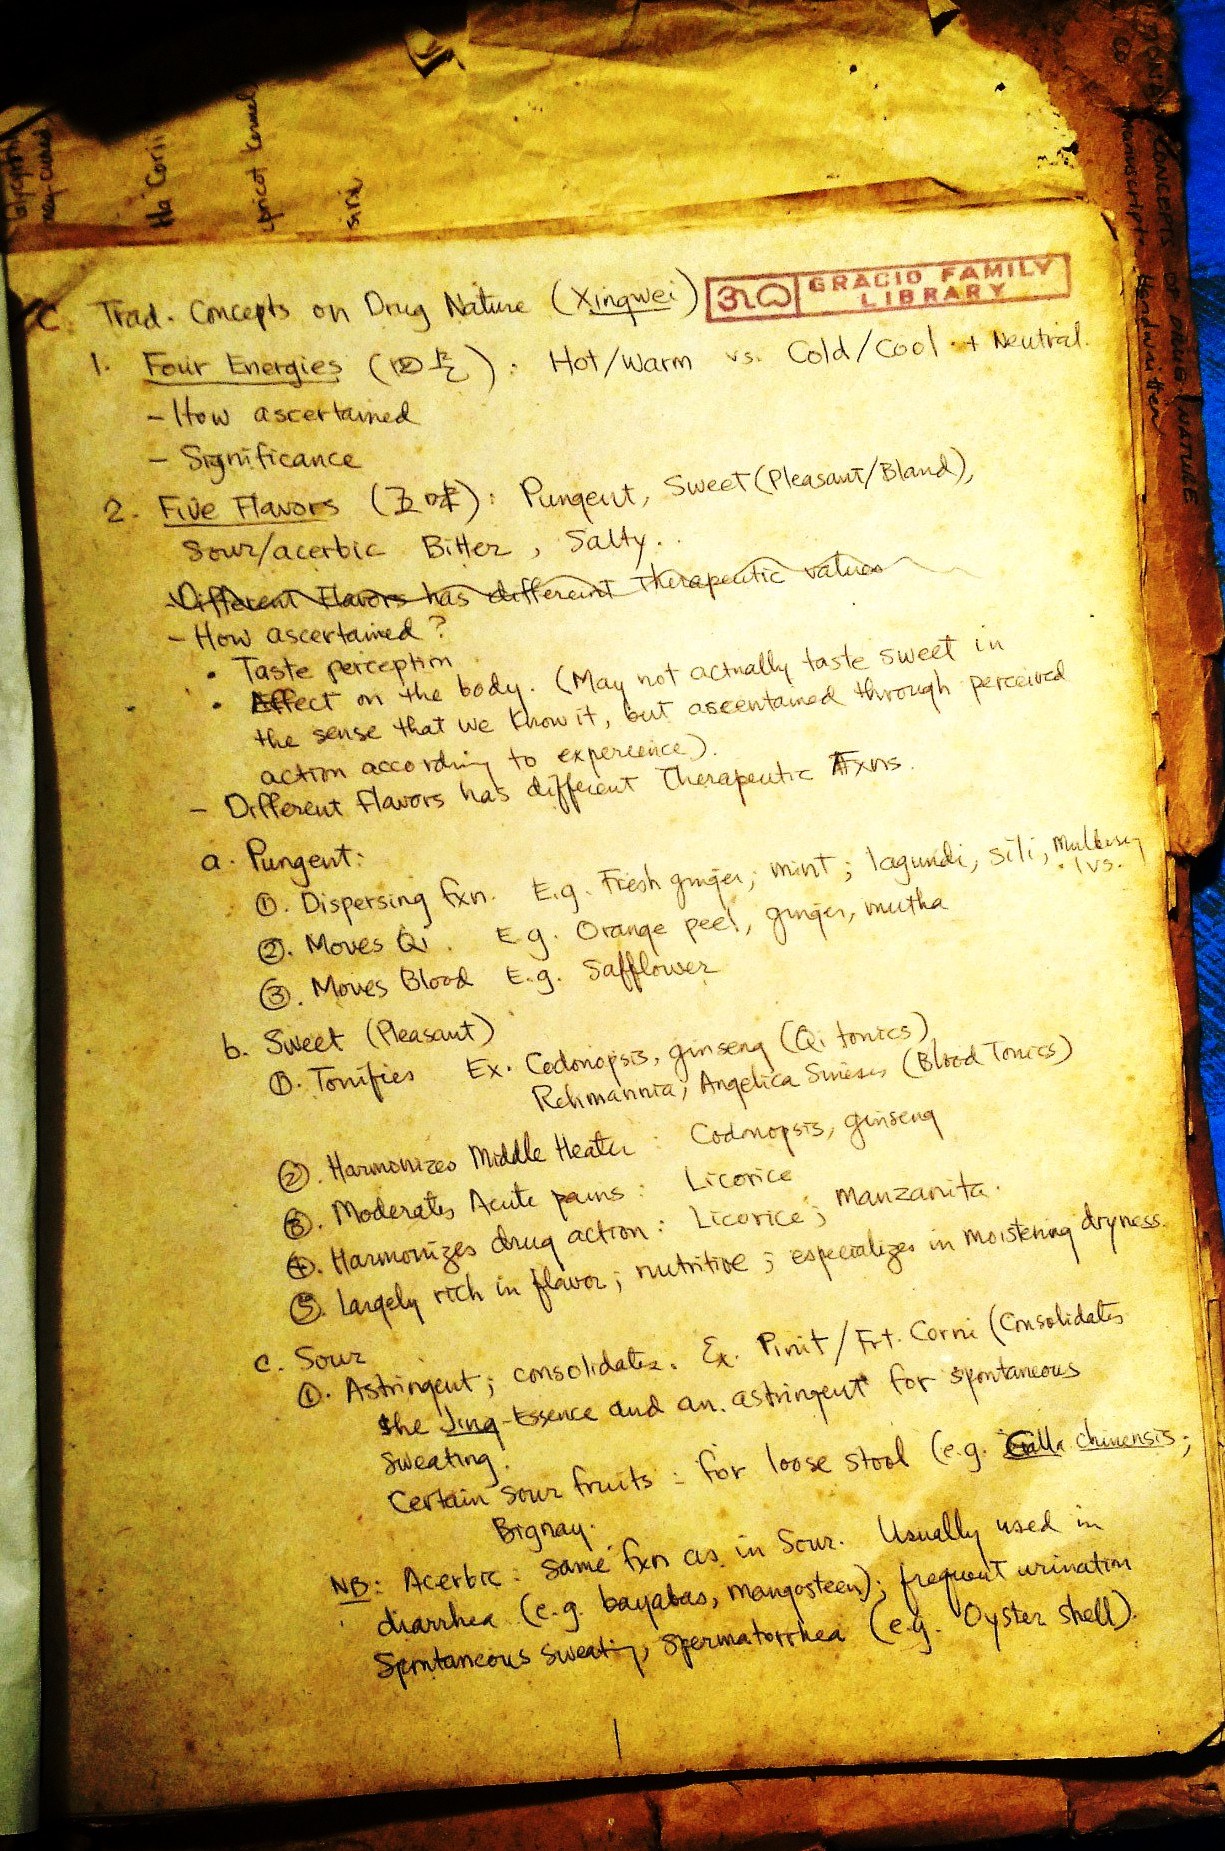 C. Trad. Concepts on Drug Nature (Xingwei)
GRACIO FAMILY
LIBRARY
1. Four Energies (四气): Hot/Warm vs. Cold/Cool + Neutral.
- How ascertained
- Significance
2. Five Flavors (五味): Pungent, Sweet (Pleasant/Bland),
Sour/acerbic Bitter, Salty.
- Different Flavors has different Therapeutic values
- How ascertained?
• Taste perception
• Effect on the body. (May not actually taste sweet in
the sense that we know it, but ascentained through perceived
action according to experience).
- Different Flavors has different Therapeutic Fxns.
a. Pungent:
①. Dispersing fxn. E.g. Fresh ginger, mint; lagundi, sili, Mulberry
lvs.
②. Moves Qi. E.g. Orange peel, ginger, mutha
③. Moves Blood E.g. Safflower
b. Sweet (Pleasant)
①. Tonifies Ex. Codonopsis, ginseng (Qi tonics)
Rehmannia, Angelica Sinesis (Blood Tonics)
②. Harmonizes Middle Heater: Codonopsis, ginseng
③. Moderates Acute pains: Licorice
④. Harmonizes drug action: Licorice; manzanita.
⑤. Largely rich in flavor; nutritive; especializes in moistening dryness.
c. Sour
①. Astringent; consolidates. Ex. Pinit/Frt. Corni (Consolidates
the Jing-Essence and an astringent for spontaneous
sweating.
Certain sour fruits: for loose stool (e.g. Galla chinensis;
Bignay.
NB: Acerbic: same fxn as in Sour. Usually used in
diarrhea (e.g. bayabas, mangosteen); frequent urination
Spontaneous sweating, spermatorrhea (e.g. Oyster shell).
1
Ha Corii
pricot kernel
CONCEPTS OF DRUG NATURE
manuscript Handwritten